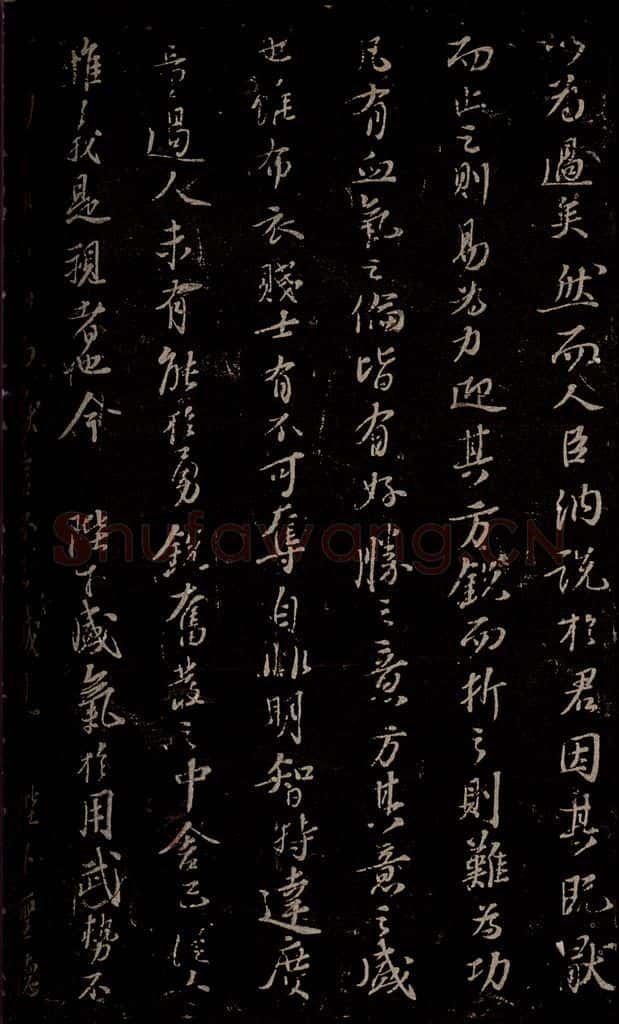 以為過矣然而人臣納說於君因其既厭
而止之則易為力迎其方銳而折之則難為功
凡有血氣之倫皆有好勝之意方其意之盛
也雖布衣賤士有不可奪自非明智特達度
量過人未有能於勇銳奮發之中舍己從人
惟義是聽者也今 陛下盛氣於用武勢不
陛下聖德
Shufawang.CN